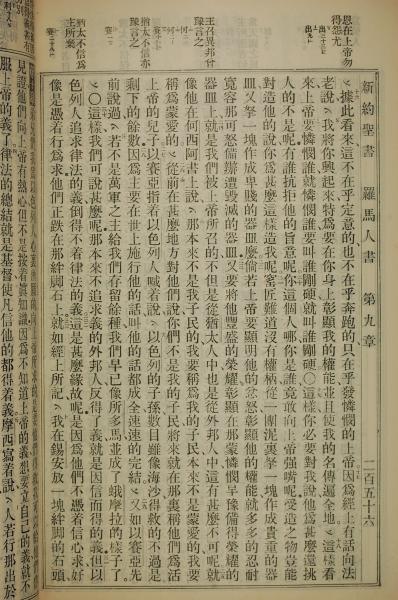 新約聖書 羅馬人書 第九章 二百五十六
恩在上帝勿
得怨尤
王召異邦付
豫言之
猶太不信亦
豫言之
猶太不信為
主所棄
據此看來這不在乎定意的也不在乎奔跑的只在乎發憐憫的上帝因為經上有話向法
老說我將你興起來特為要在你身上彰顯我的權能並且使我的名傳遍全地這樣看
來上帝要憐憫誰就憐憫誰要叫誰剛硬就叫誰剛硬○這樣你必要對我說他為甚麼還挑
人的不是呢有誰抗拒他的旨意呢你這個人哪你是誰竟敢向上帝強嘴呢受造之物豈能
對造他的說你為甚麼這樣造我呢窰匠難道沒有權柄從一團泥裏拏一塊作成貴重的器
皿又拏一塊作成卑賤的器皿麼倘若上帝要顯明他的忿怒彰顯他的權能就多多的忍耐
寬容那可怒備辦遭毀滅的器皿又要將他豐盛的榮耀彰顯在那蒙憐憫早豫備得榮耀的
器皿上就是我們被上帝所召的不但是從猶太人中也是從外邦人中這有甚麼不可呢就
像他在何西阿書上說那本來不是我子民的我要稱為我的子民本來不是蒙愛的我要
稱為蒙愛的從前在甚麼地方對他們說你們不是我的子民將來就在那裏稱他們為活
上帝的兒子以賽亞指着以色列人喊着說以色列的子孫數目雖像海沙得救的不過是
剩下的餘數因為主要在世上施行他的話叫他的話都成全速速的完結又如以賽亞先
前說過若不是萬軍之主給我們存留餘種我們早已像所多馬並成了蛾摩拉的樣子了
○這樣我們可說甚麼呢那本來不追求義的外邦人反得了義就是因信而得的義但以
色列人追求律法的義倒得不着律法的義這是甚麼緣故呢是因為他們不憑着信心求好
像是憑着行為求他們正跌在那絆腳石上就如經上所記我在錫安放一塊絆腳的石頭
見證他們向上帝有熱心但不是按着真知識因為不知道上帝的義想要立自己的義就不
服上帝的義了律法的總結就是基督使凡信他的都得着義摩西寫着說人若行那出於